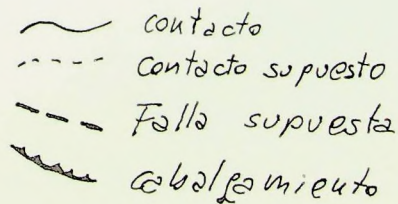 contacto
contacto supuesto
Falla supuesta
cabalgamiento